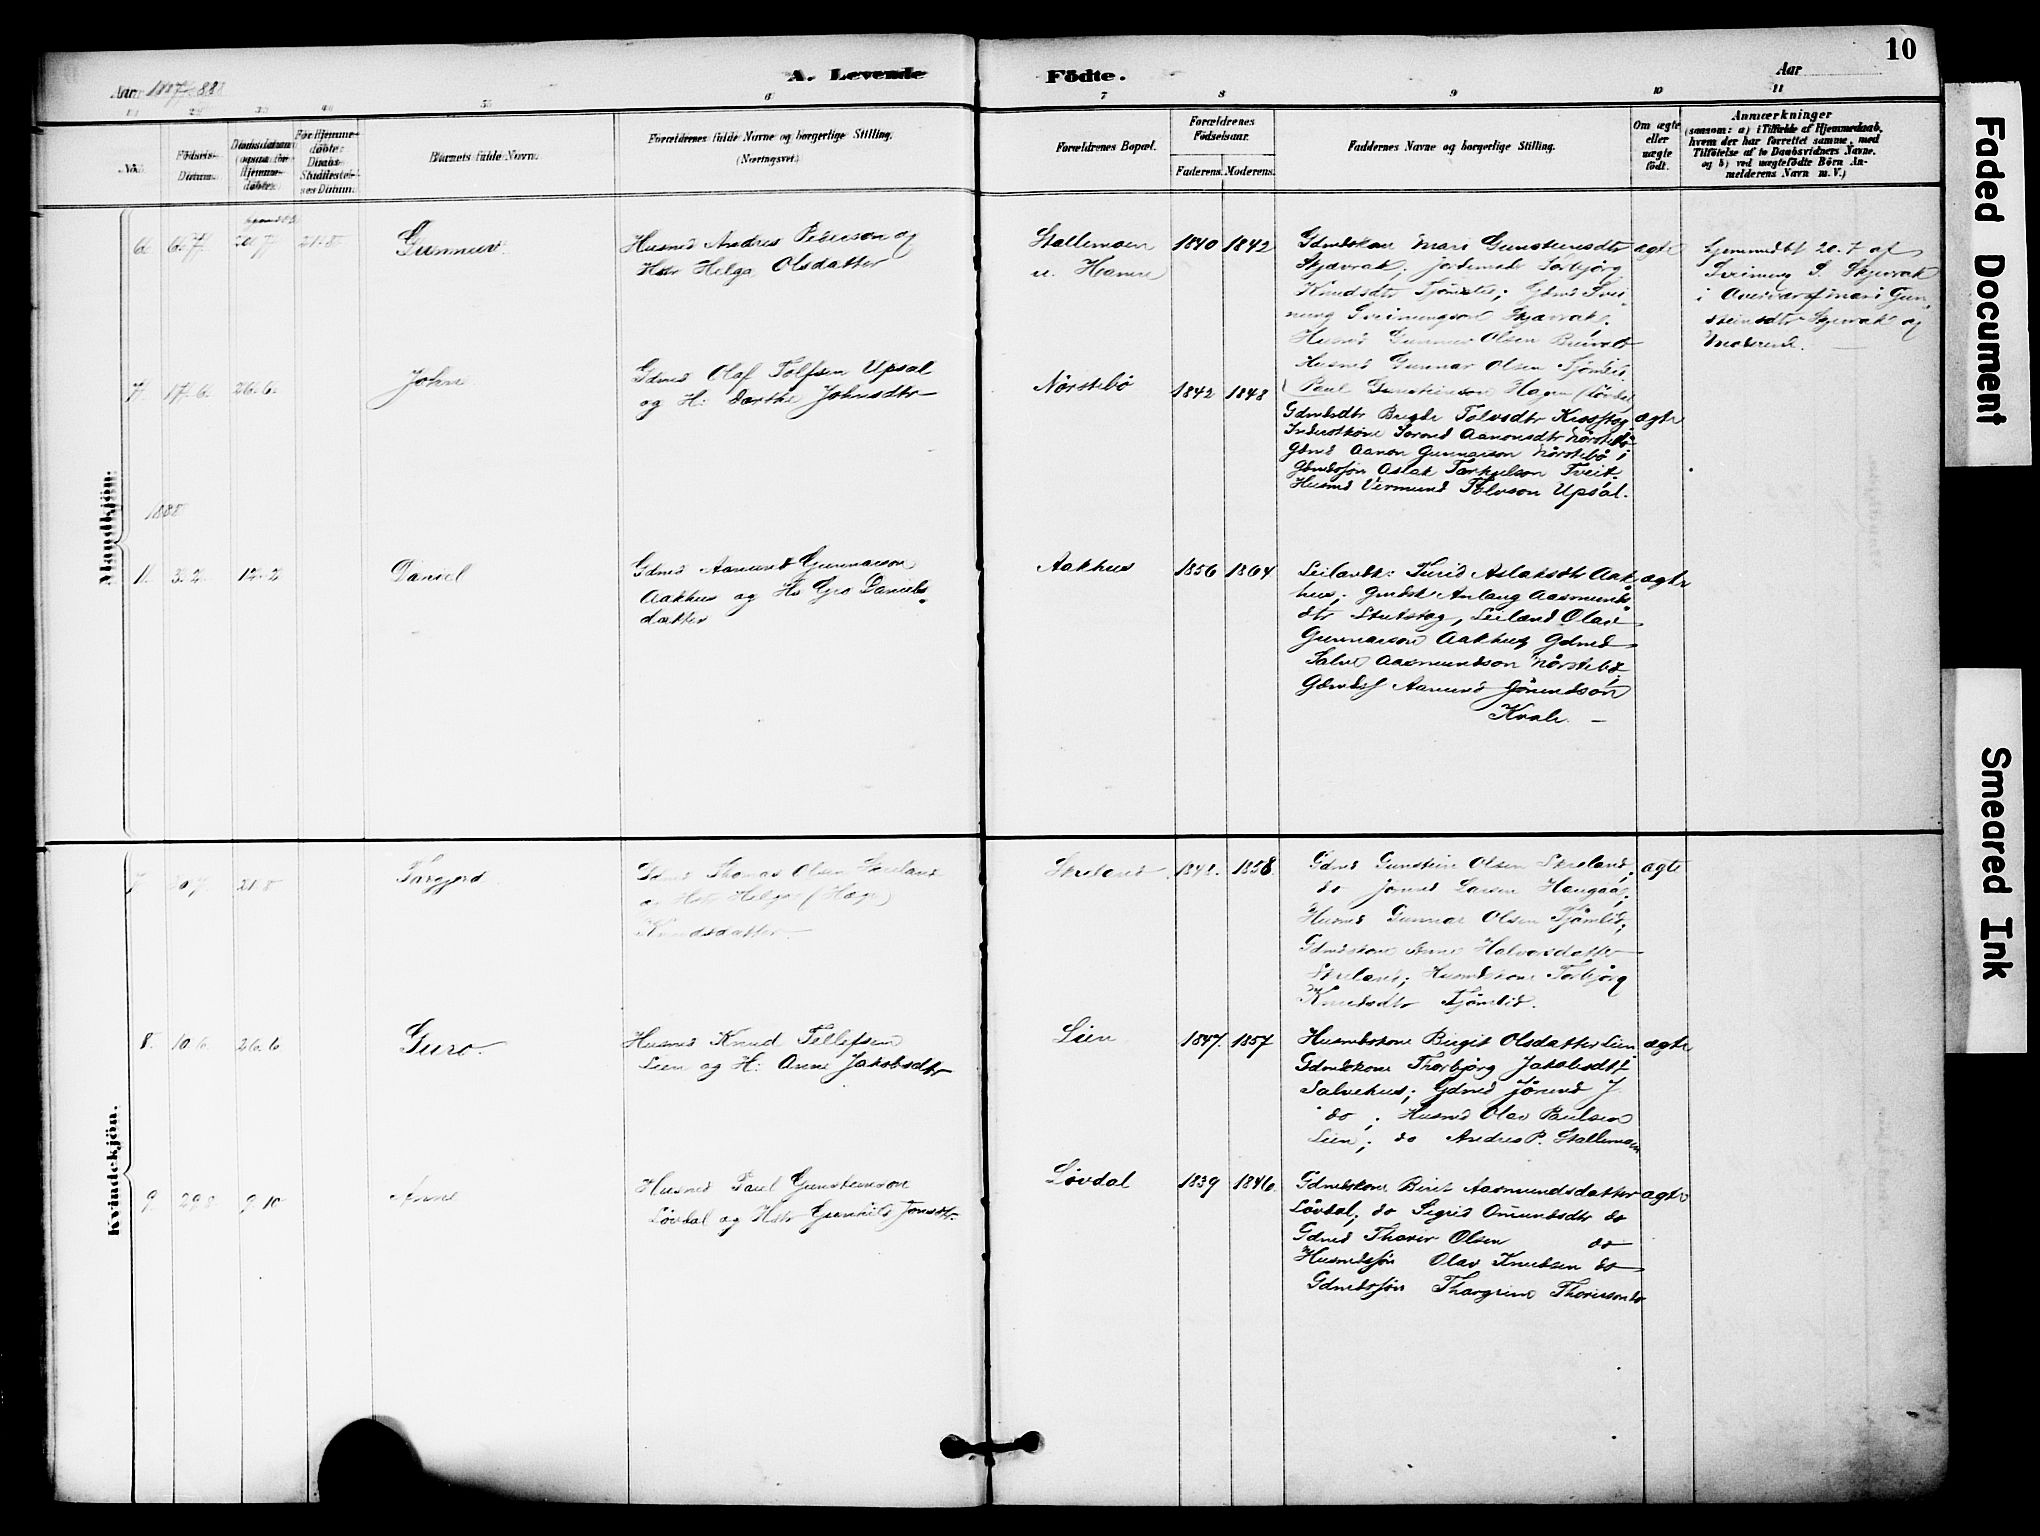 10
Aar 1887-88
A. Levende Födte.
Aar
1 2 3 4 5 6 7 8 9 10 11
No.
Födsels-Datum.
Daabsdatum (ogsaa for Hjemmedøbte)
For Hjemmedøbte: Daabs Stadfæstelses Datum.
Barnets fulde Navn.
Forældrenes fulde Navne og borgerlige Stilling.
(Næringsvei.)
Forældrenes Bopæl.
Forældrenes Födselsaar.
Faderens. Moderens.
Faddernes Navne og borgerlige Stilling.
Om ægte eller uægte födt.
Anmærkninger
(saasom: a) i Tilfælde af Hjemmedaab,
hvem der har forrettet samme, med
Tilföielse af to Daabsvidners Navne,
og b) ved uægtefödte Börn An-
melderens Navn m. V.)
Mandkjön:
6. 20.7 21.8 Gunnuv.
Husmd Andres Pederson og
Hstr Helga Olsdatter
Stallemoen
u. Hanne
1840 1842
Gdmdskone Mari Gunsteinsdtr
Skjævrak, Jordemdr Torbjörg
Knudsdtr Tjömlid; Gdmd Svei-
nung Sveinungson Skjævrak.
Husmd Gunnar Olsen
Husmd Gunnar Olsen Tjömlid,
Paul Gunsteinson Hagen (Løvdal
ægte
hjemmedbt 20.7 af
Sveinung S. Skjevrak
i Overvær af Mari Gun-
steinsdtr Skjevrak og
Moderen.
7. 17.6. 26.6. Johne
Gdmd Olaf Tolfsen Upsal
og H: Dorthe Johnsdtr
Nörstebö
1842 1848
Gdmdsdtr Birgite Tolvsdtr
Aanonsdtr Nörstebö
Gdmd Aanon Gunnarson Nörstebö
Gdmdssön Aslak Tarkjelson Tveit.
Husmd Vermund Tolvson Upsal.
ægte
1888
1. 3.2. 12.2 Daniel
Gdmd Aamund Gunnarson
Aakhus og Hs Gro Daniels-
datter
Aakhus
1856 1864
Leilændk: Turid Aslaksdtr Aak-
hus; Gmdsk Anlaug Aasmunds
dtr Stutstog, Leilænd Olav
Gunnarson Aakhus Gdmd
Salve Aasmundson Nörstebö
Gdmdsf Aamund Jörundson
Kvale. —
ægte
Kvindekjön.
7 20.7 21.8 Targjerd
Gdmd Thomas Olsen Skreland
og Hstr Helga (Hæge)
Knudsdatter.
Skreland
1848. 1858
Gdmd Gunstein Olsen Skreland,
do Jormd Larsen Haugaas;
Husmd Gunnar Olsen Tjömlid;
Gdmdskone Anne Halvorsdatter
Skreland; Husmdskone Torbjörg
Knudsdtr Tjömlid.
ægte
8. 10.6 26.6 Guro.
Husmd Knud Tellefsen
Lien og H: Anne Jakobsdtr
Lien
1847. 1857
Husmdskone Birgit Olsdatter Lien
Gdmdskone Thorbjörg Jakobsdtr
Salvehus; Gdmd Jörund J.
do ; Husmd Olav Paulsen
Lien; do Andres P. Stallemoen
ægte
9. 29.8 9.10 Anne
Husmd Paul Gunsteinson
Løvdal og Hstr Gunhild Jonsdtr.
Løvdal
1839 1846
Gdmdskone Birit Aasmundsdatter
Lövdal; do Sigrid Omundsdtr do
Gdmd Thorer Olsen do
Husmdssön Olav Knudsen do
Gdmdssön Thorgrim Thorerson do
ægte
Faded Document
Smeared Ink